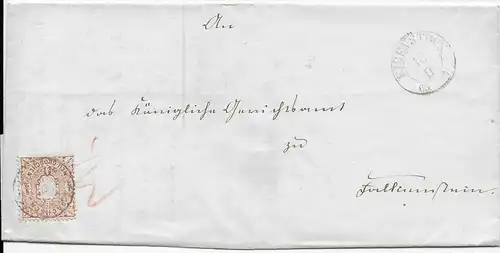 An
EIBENSTOCK
das Königliche Gerichtsamt
zu
Falkenstein.